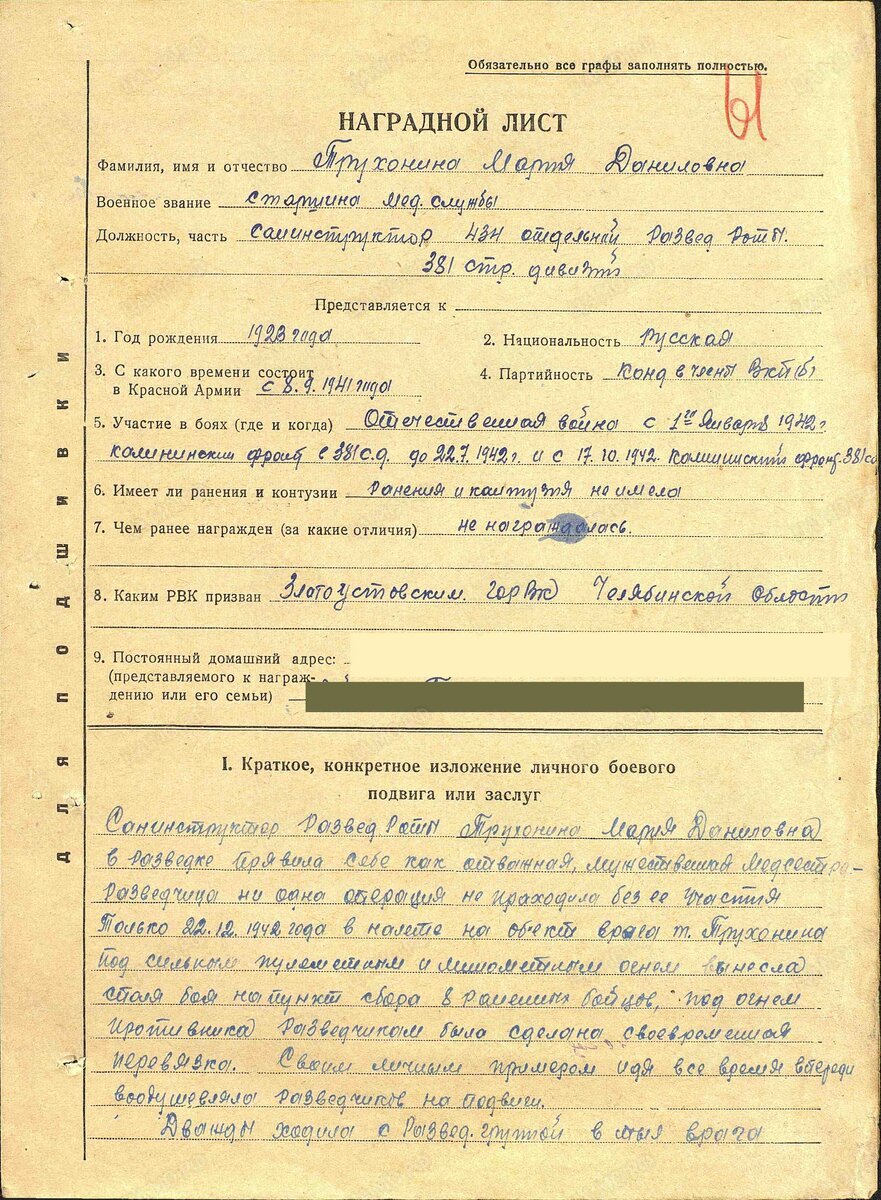 Обязательно все графы заполнять полностью.
61
НАГРАДНОЙ ЛИСТ
Фамилия, имя и отчество Трухонина Мария Даниловна
Военное звание старшина мед. службы
Должность, часть Санинструктор 434 отдельной развед роты.
381 стр. дивизии
Представляется к
1. Год рождения 1923 года
2. Национальность Русская
3. С какого времени состоит
в Красной Армии с 8.9.1941 года
4. Партийность Канд в члены ВКП(б)
5. Участие в боях (где и когда) Отечественная война с 1го Января 1942 г
Калининский фронт в 381 с.д. до 22.7.1942 г. и с 17.10.1942. Калининский фронт. 381 сд
6. Имеет ли ранения и контузии Ранения и кантузия не имела
7. Чем ранее награжден (за какие отличия) не награждалась.
8. Каким РВК призван Златоустовским. ГорВк Челябинской Области
9. Постоянный домашний адрес:
(представляемого к награж-
дению или его семьи)
ДЛЯ ПОДШИВКИ
I. Краткое, конкретное изложение личного боевого
подвига или заслуг
Санинструктор Развед Роты Трухонина Мария Даниловна
в разведке праявила себе как отважная, мужественная медсестра-
Разведчица ни одна операция не праходила без ее участия
Только 22.12.1942 года в налете на обект врага т. Трухонина
под сильным пулеметным и минометным огнем вынесла
с поля боя на пункт сбора 8 раненых бойцов, под огнем
противника разведчикам была сделана своевременная
перевязка. Своим личным примером идя все время впереди
воодушевляла разведчиков на подвиги.
Дважды ходила с Развед. группой в тыл врага